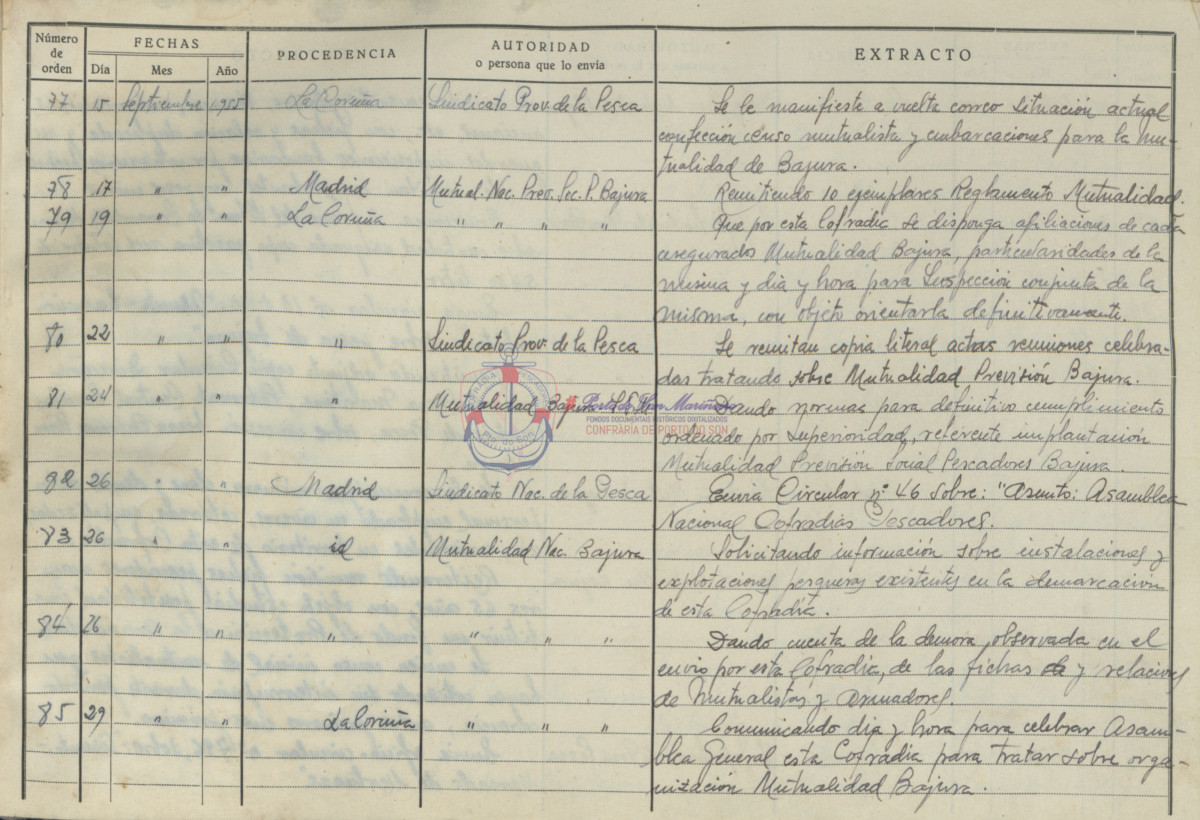 Número de orden FECHAS PROCEDENCIA AUTORIDAD o persona que lo envía EXTRACTO
Día Mes Año
77 15 Septiembre 1955 La Coruña Sindicato Prov. de la Pesca Se le manifieste a vuelta correo situación actual
confección censo mutualista y embarcaciones para la mu-
tualidad de Bajura.
78 17 " " Madrid Mutual. Nac. Prev. Sec. P. Bajura Remitiendo 10 ejemplares Reglamento Mutualidad.
79 19 " " La Coruña " " " " Que por esta Cofradía se disponga afiliaciones de cada
asegurados Mutualidad Bajura, particularidades de la
misma y dia y hora para Inspección conjunta de la
misma, con objeto orientarla definitivamente.
80 22 " " " Sindicato Prov. de la Pesca Se remitan copia literal actas reuniones celebra-
das tratando sobre Mutualidad Previsión Bajura.
81 24 " " " Mutualidad Bajura Dando normas para definitivo cumplimiento
ordenado por Superioridad, referente implantación
Mutualidad Previsión Social Pescadores Bajura.
82 26 " " Madrid Sindicato Nac. de la Pesca Envia Circular nº 46 sobre: "Asunto: Asamblea
Nacional Cofradias Pescadores.
83 26 " " id Mutualidad Nac. Bajura Solicitando información sobre instalaciones y
explotaciones pesqueras existentes en la demarcación
de esta Cofradía.
84 26 " " " " " " Dando cuenta de la demora observada en el
envio por esta Cofradía, de las fichas de y relaciones
de Mutualistas y Armadores.
85 29 " " La Coruña " " " Comunicando dia y hora para celebrar Asam-
blea General esta Cofradía para tratar sobre orga-
nización Mutualidad Bajura.
Porto do Son Mariñeiro
FONDOS DOCUMENTAIS HISTÓRICOS DIGITALIZADOS
CONFRARÍA DE PORTO DO SON